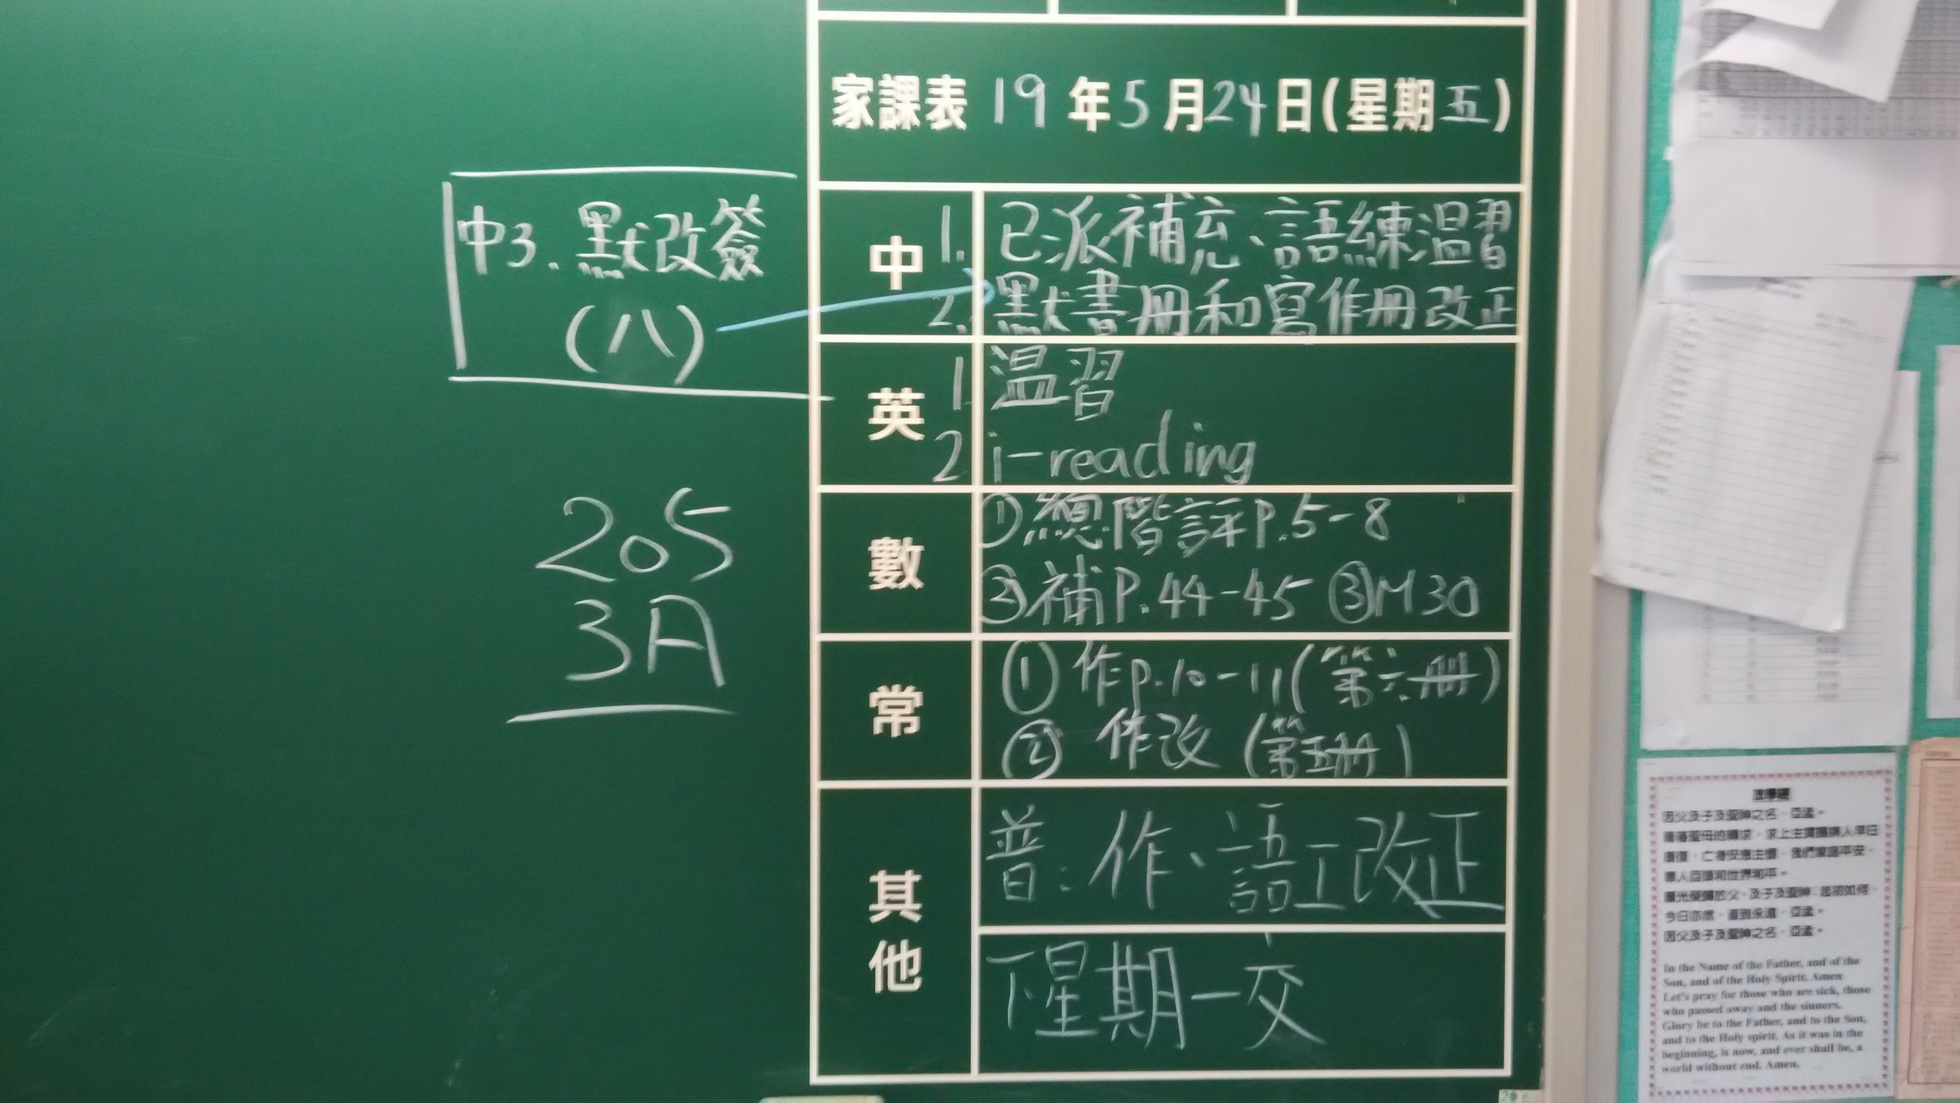 家課表 19年5月24日(星期五)
中3.默改簽
(八)
205
3A
中
1. 已派補充、語練温習
2. 默書冊和寫作冊改正
英
1. 温習
2 i-reading
數
①總階評P.5-8
②補P.44-45 ③M30
常
① 作p.10-11(第六冊)
② 作改 (第五冊)
其他
普:作、語工改正
下星期一交
放學經
因父及子及聖神之名,亞孟。
今日亦然,直到永遠,亞孟。
因父及子及聖神之名,亞孟。
In the Name of the Father, and of the
Son, and of the Holy Spirit. Amen
Let's pray for those who are sick, those
who passed away and the sinners.
Glory be to the Father, and to the Son,
and to the Holy spirit. As it was in the
beginning, is now, and ever shall be, a
world without end. Amen.